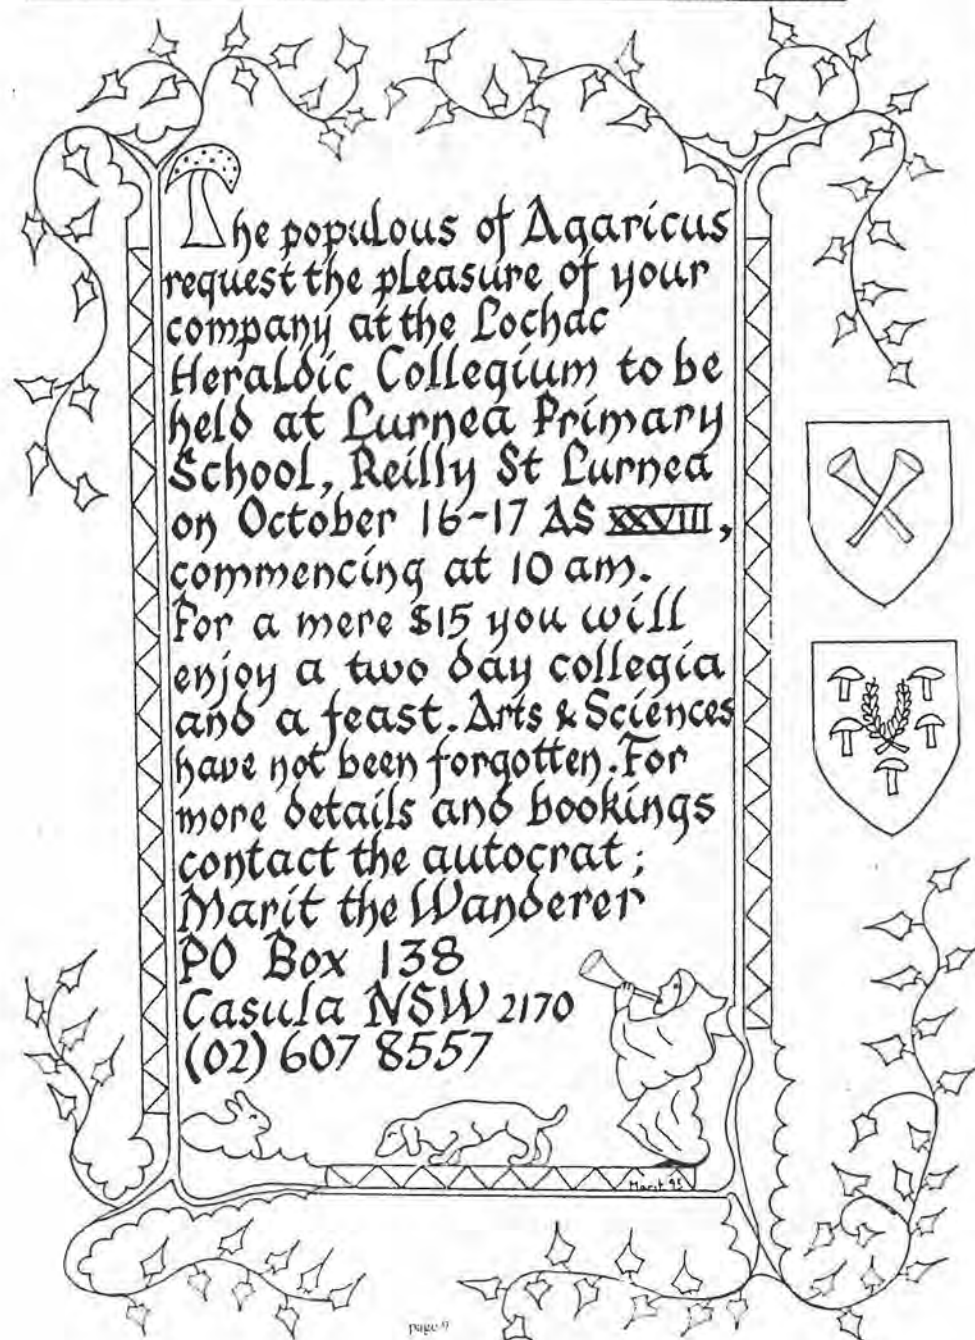 The populous of Agaricus
request the pleasure of your
company at the Lochac
Heraldic Collegium to be
held at Lurnea Primary
School, Reilly St Lurnea
on October 16-17 AS XXVIII,
commencing at 10 am.
For a mere $15 you will
enjoy a two day collegia
and a feast. Arts & Sciences
have not been forgotten. For
more details and bookings
contact the autocrat;
Marit the Wanderer
PO Box 138
Casula NSW 2170
(02) 607 8557
Marit 93
page 9